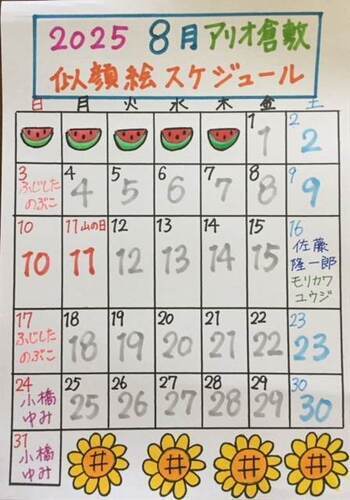 2025 8月 アリオ倉敷
似顔絵スケジュール
日 月 火 水 木 金 土
1 1 2 2
3 ふじした のぶこ 4 4 5 5 6 6 7 7 8 8 9 9
10 10 11 山の日 11 12 12 13 13 14 14 15 15 16 佐藤 隆一郎 モリカワ ユウジ
17 ふじした のぶこ 18 18 19 19 20 20 21 21 22 22 23 23
24 小橋 ゆみ 25 25 26 26 27 27 28 28 29 29 30 30
31 小橋 ゆみ